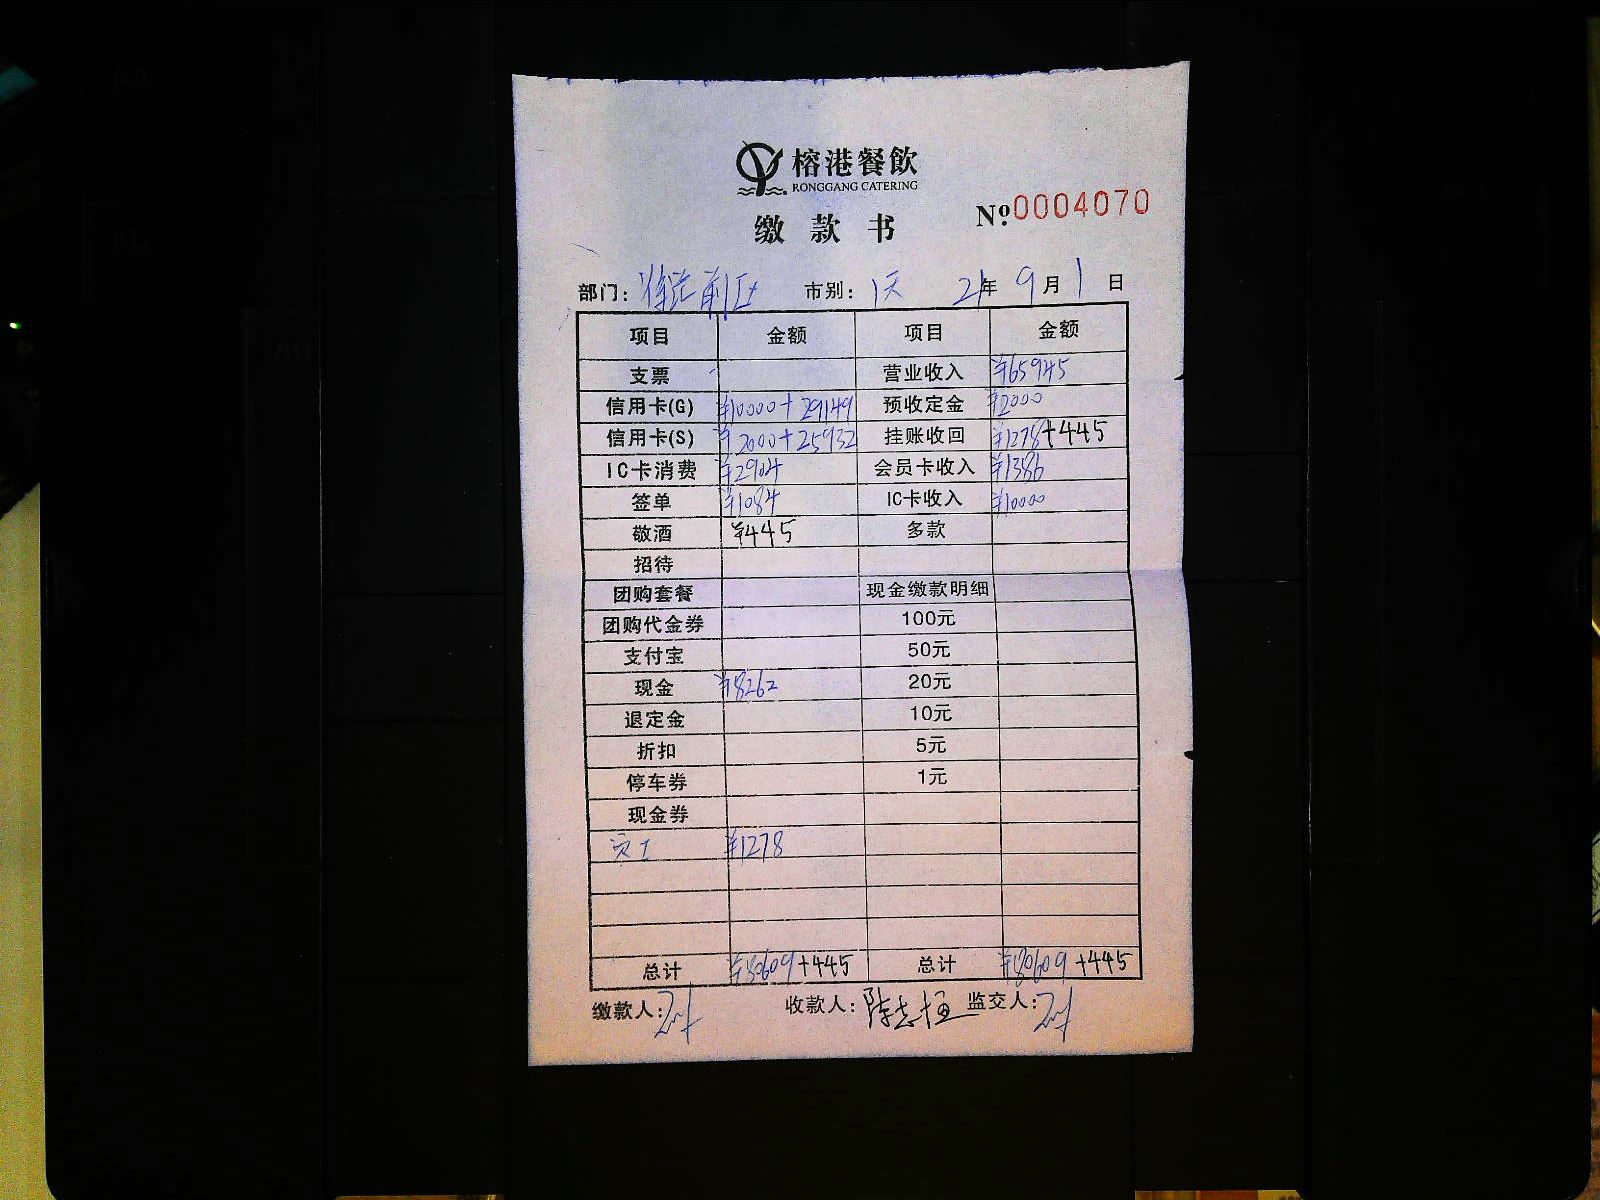 榕港餐飲
RONGGANG CATERING
缴款书
№0004070
部门: 徐汇前区 市别: 1天 21年 9月 1日
项目 金额 项目 金额
支票 营业收入 ¥65945
信用卡(G) ¥10000+29149 预收定金 ¥2000
信用卡(S) ¥2000+25932 挂账收回 ¥1278+445
IC卡消费 ¥2904 会员卡收入 ¥1386
签单 ¥1084 IC卡收入 ¥10000
敬酒 ¥445 多款
招待
团购套餐 现金缴款明细
团购代金券 100元
支付宝 50元
现金 ¥8262 20元
退定金 10元
折扣 5元
停车券 1元
现金券
员工 ¥1278
总计 ¥80609+445 总计 ¥80609+445
缴款人: 收款人: 陈志恒 监交人: